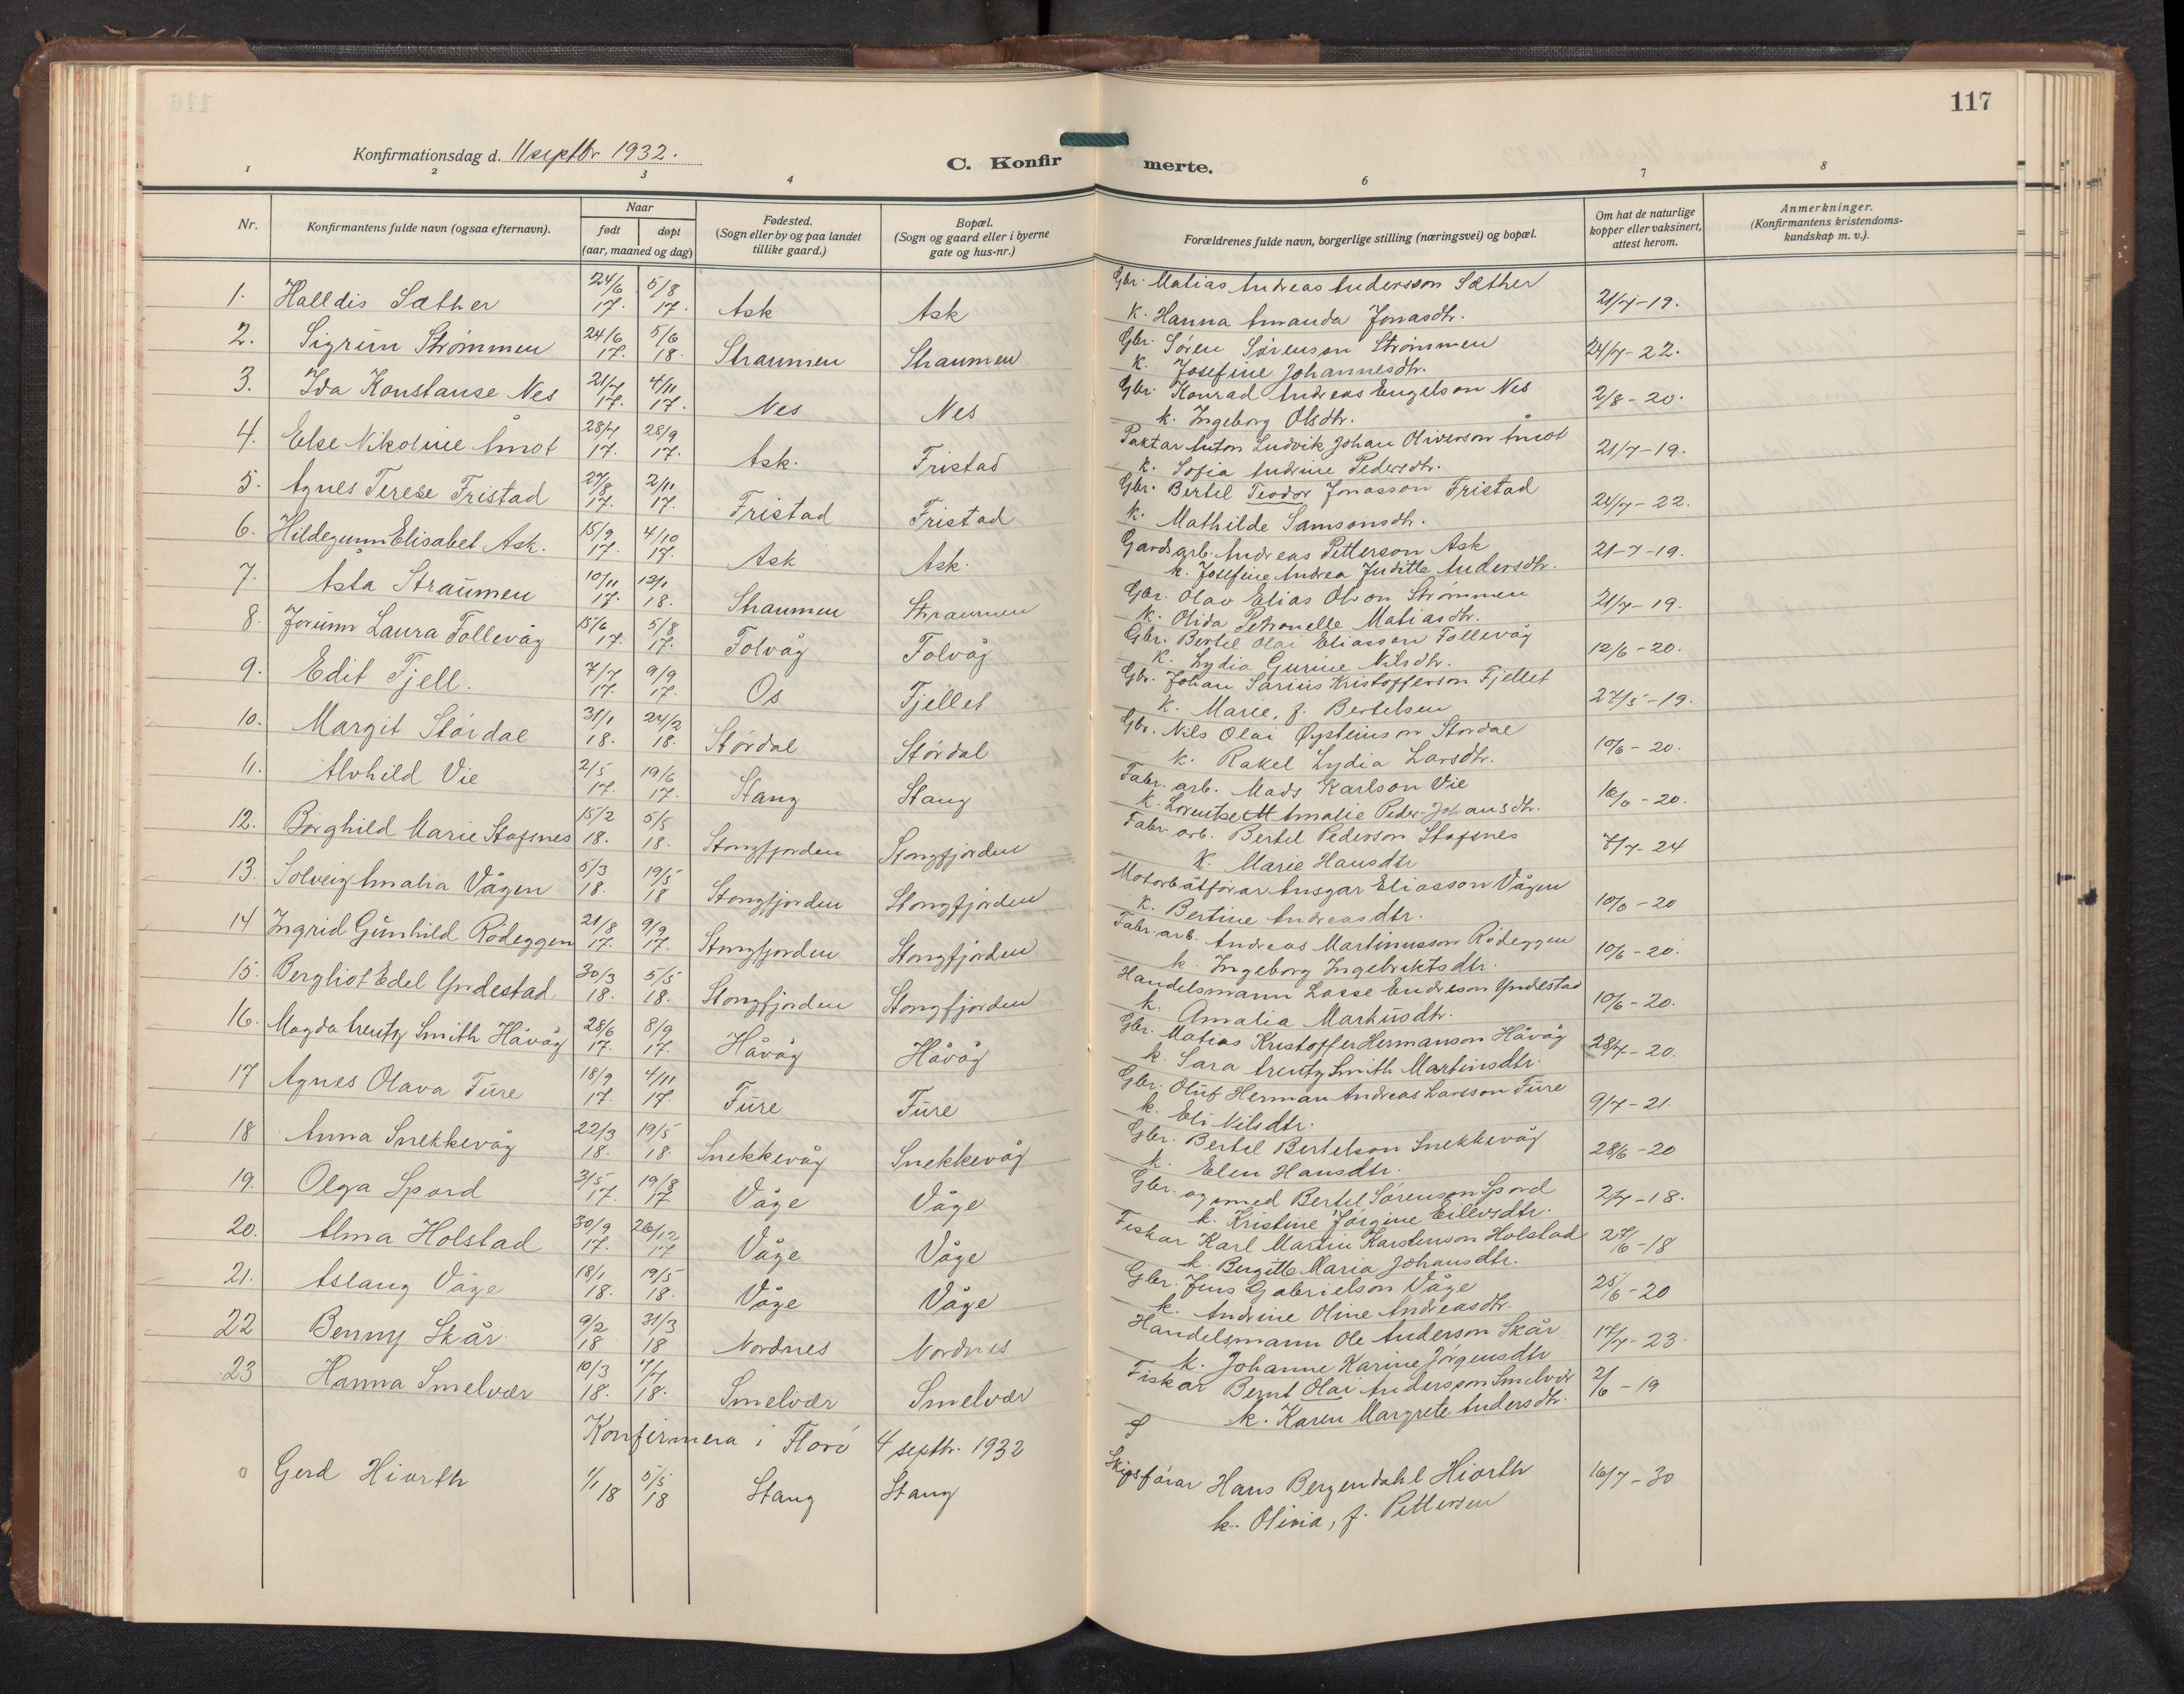 117
Konfirmationsdag d. 11 septbr 1932.
C. Konfirmerte.
1 2 3 4 6 7 8
Nr.
Konfirmantens fulde navn (ogsaa efternavn).
Naar
født døpt
(aar, maaned og dag)
Fødested.
(Sogn eller by og paa landet
tillike gaard.)
Bopæl.
(Sogn og gaard eller i byerne
gate og hus-nr.)
Forældrenes fulde navn, borgerlige stilling (næringsvei) og bopæl.
Om hat de naturlige
kopper eller vaksinert,
attest herom.
Anmerkninger.
(Konfirmantens kristendoms-
kundskap m. v.).
1. Halldis Sæther 24/6 17. 5/8 17. Ask Ask Gbr. Matias Andreas Andersson Sæther 21/7-19.
K. Hanna Amanda Jonasdtr.
2. Sigrun Strømmen 24/6 17. 5/6 18. Straumen Straumen Gbr. Søren Sørenson Strømmen 24/7-22.
K. Josefine Johannesdtr.
3. Ida Konstanse Nes 21/7 17. 4/11 17. Nes Nes Gbr. Konrad Andreas Engelson Nes 2/8-20.
k. Ingeborg Olsdtr.
4. Else Nikoline Åmot 28/7 17. 28/9 17. Ask. Fristad Paktar Anton Ludvik Johan Oliverson Åmot 21/7-19.
k. Sofia Andrine Pedersdtr.
5. Agnes Terese Fristad 27/8 17. 2/11 17. Fristad Fristad Gbr. Bertel Teodor Jonasson Fristad 24/7-22.
k. Mathilde Samsonsdtr.
6. Hildegunn Elisabet Ask. 15/9 17. 4/10 17. Ask Ask. Gardsarb. Andreas Petterson Ask 21-7-19.
k. Josefine Andrea Juditte Andersdtr.
7. Asta Straumen 10/11 17. 13/1 18. Straumen Straumen Gbr. Olav Elias Olson Strømmen 21/7-19.
K. Olida Petronelle Matiasdtr.
8. Jorunn Laura Tollevåg 15/6 17. 5/8 17. Tolvåg Tolvåg Gbr. Bertel Olai Eliasson Tollevåg 12/6-20.
K. Lydia Gurine Nilsdtr.
9. Edit Fjell. 7/7 17. 9/9 17. Os Fjellet Gbr. Johan Sarius Kristofferson Fjellet 27/5-19.
K. Marie, f. Bertelsen
10. Margit Stórdal 31/1 18. 24/2 18. Stórdal Stórdal Gbr. Nils Olai Øysteinson Stordal 10/6-20.
k. Rakel Lydia Larsdtr.
11. Alvhild Vie 2/5 17. 19/6 17. Stang Stang Fabr. arb. Mads Karlson Vie 16/6-20.
K. Lorentse M Amalie Peder-Johansdtr.
12. Borghild Marie Stafsnes 15/2 18. 5/5 18. Stongfjorden Stongfjorden Fabr. arb. Bertel Pederson Stafsnes 7/7-24
K. Marie Hansdtr
13. Solveig Amalia Vågen 5/3 18. 19/5 18 Stongfjorden Stongfjorden Motorbåtførar Ansgar Eliasson Vågen 10/6-20
K. Bertine Andreasdtr.
14 Ingrid Gunhild Rödeggen 21/8 17. 9/9 17. Stongfjorden Stongfjorden Fabr. arb. Andreas Martinusson Rödeggen 10/6-20.
k. Ingeborg Ingebriktsdtr.
15. Bergliot Edel Yndestad 30/3 18. 5/5 18. Stongfjorden Stongfjorden Handelsmann Lasse Endreson Yndestad 10/6-20.
k. Amalia Markusdtr.
16. Magda Arentz Smith Håvåg 28/6 17. 8/9 17. Håvåg Håvåg Gbr. Matias Kristoffer Hermanson Håvåg 28/7-20.
k. Sara Arentz Smith Martinsdtr.
17 Agnes Olava Fure 18/9 17. 4/11 17. Fure Fure Gbr. Oluf Herman Andreas Larsson Fure 9/7-21.
k. Eli Nilsdtr.
18 Anna Snekkevåg 22/3 18. 19/5 18. Snekkevåg Snekkevåg Gbr. Bertel Bertelson Snekkevåg 28/6-20
k. Elen Hansdtr.
19. Olga Spord 3/5 17. 19/8 17. Våge Våge Gbr. og smed Bertel Sörenson Spord 2/7-18.
k. Kristine Jörgine Eilevsdtr.
20. Alma Holstad 30/9 17. 26/12 17 Våge Våge Fiskar Karl Martin Karstenson Holstad 27/6-18
k. Bergitte Maria Johansdtr.
21. Aslaug Våge 18/1 18. 19/5 18. Våge Våge Gbr. Jens Gabrielson Våge 25/6-20
k. Andrine Oline Andreasdtr.
22 Benny Skår 9/2 18 31/3 18 Nordnes Nordnes Handelsmann Ole Anderson Skår 17/7-23.
k. Johanne Karine Jörgensdtr
23 Hanna Smelvær 10/3 18. 7/7 18. Smelvær Smelvær Fiskar Bernt Olai Andersson Smelvær 2/6-19
k. Karen Margrete Andersdtr.
Konfirmera i Florö 4 septbr. 1932
Gerd Hiorth 1/1 18 5/5 18 Stang Stang Skipsförar Hans Bergendahl Hiorth 16/7-30
k. Olivia, f. Pettersen